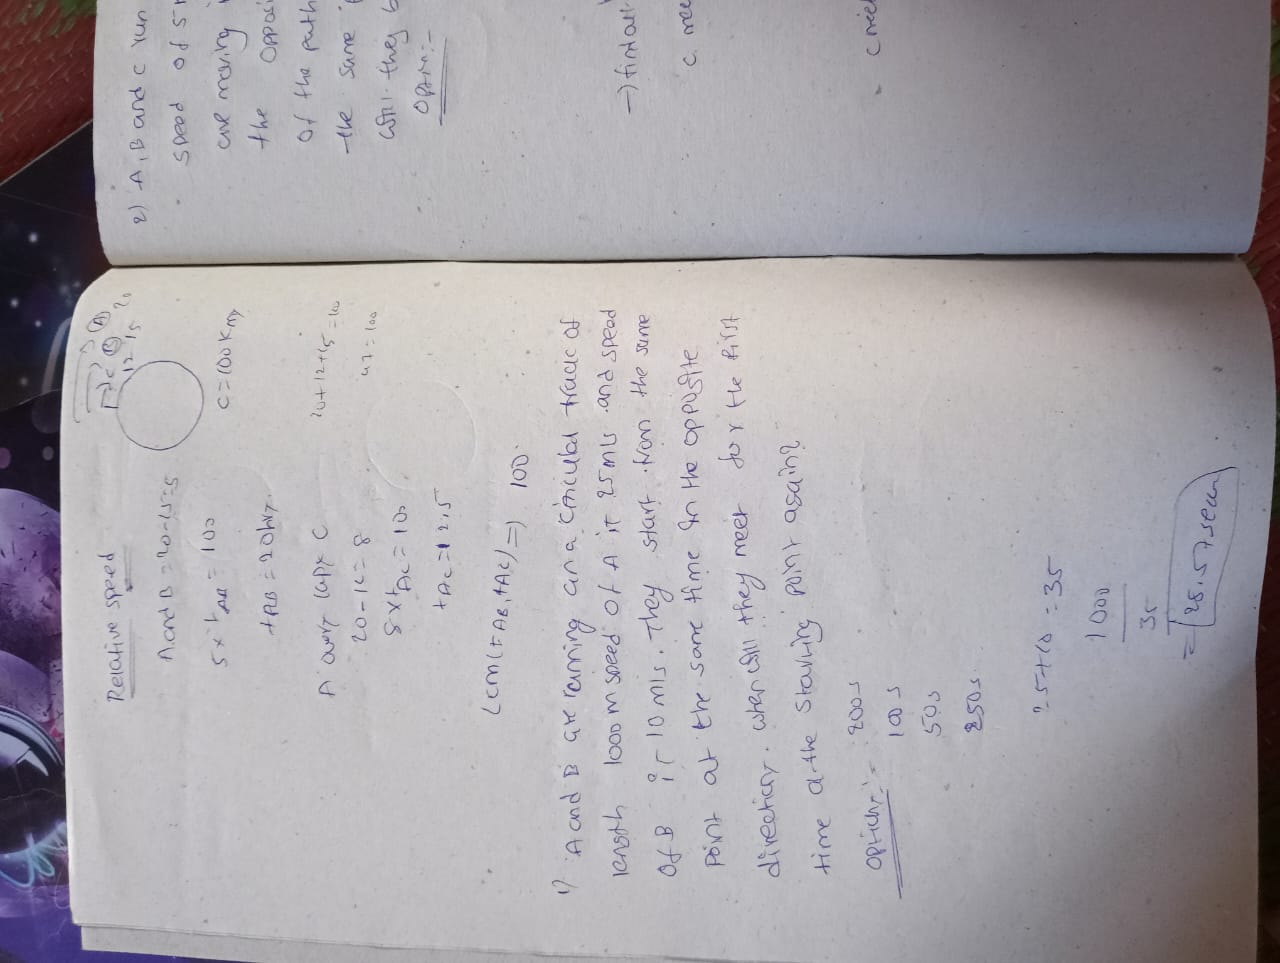 Relative speed
A and B = 20-15=5
5 x tAB = 100
tAB = 20hr.
C = 100 Km
12 15 20
A C
20-12=8
8 x tAC = 100
tAC = 12.5
20+12+15=100
47=100
LCM(tAB, tAC) => 100
1) A and B are running on a circular track of
length 1000 m speed of A is 25 m/s and speed
of B is 10 m/s. They start from the same
point at the same time in the opposite
direction. when will they meet for the first
time at the starting point again?
200s
100s
50s
250s
25+10=35
1000
35
= 28.57 secon
2) A, B and C run
speed of 5
are moving
the oppos
of the path
the same
will they
options:-
-> find out
c mee
c meet